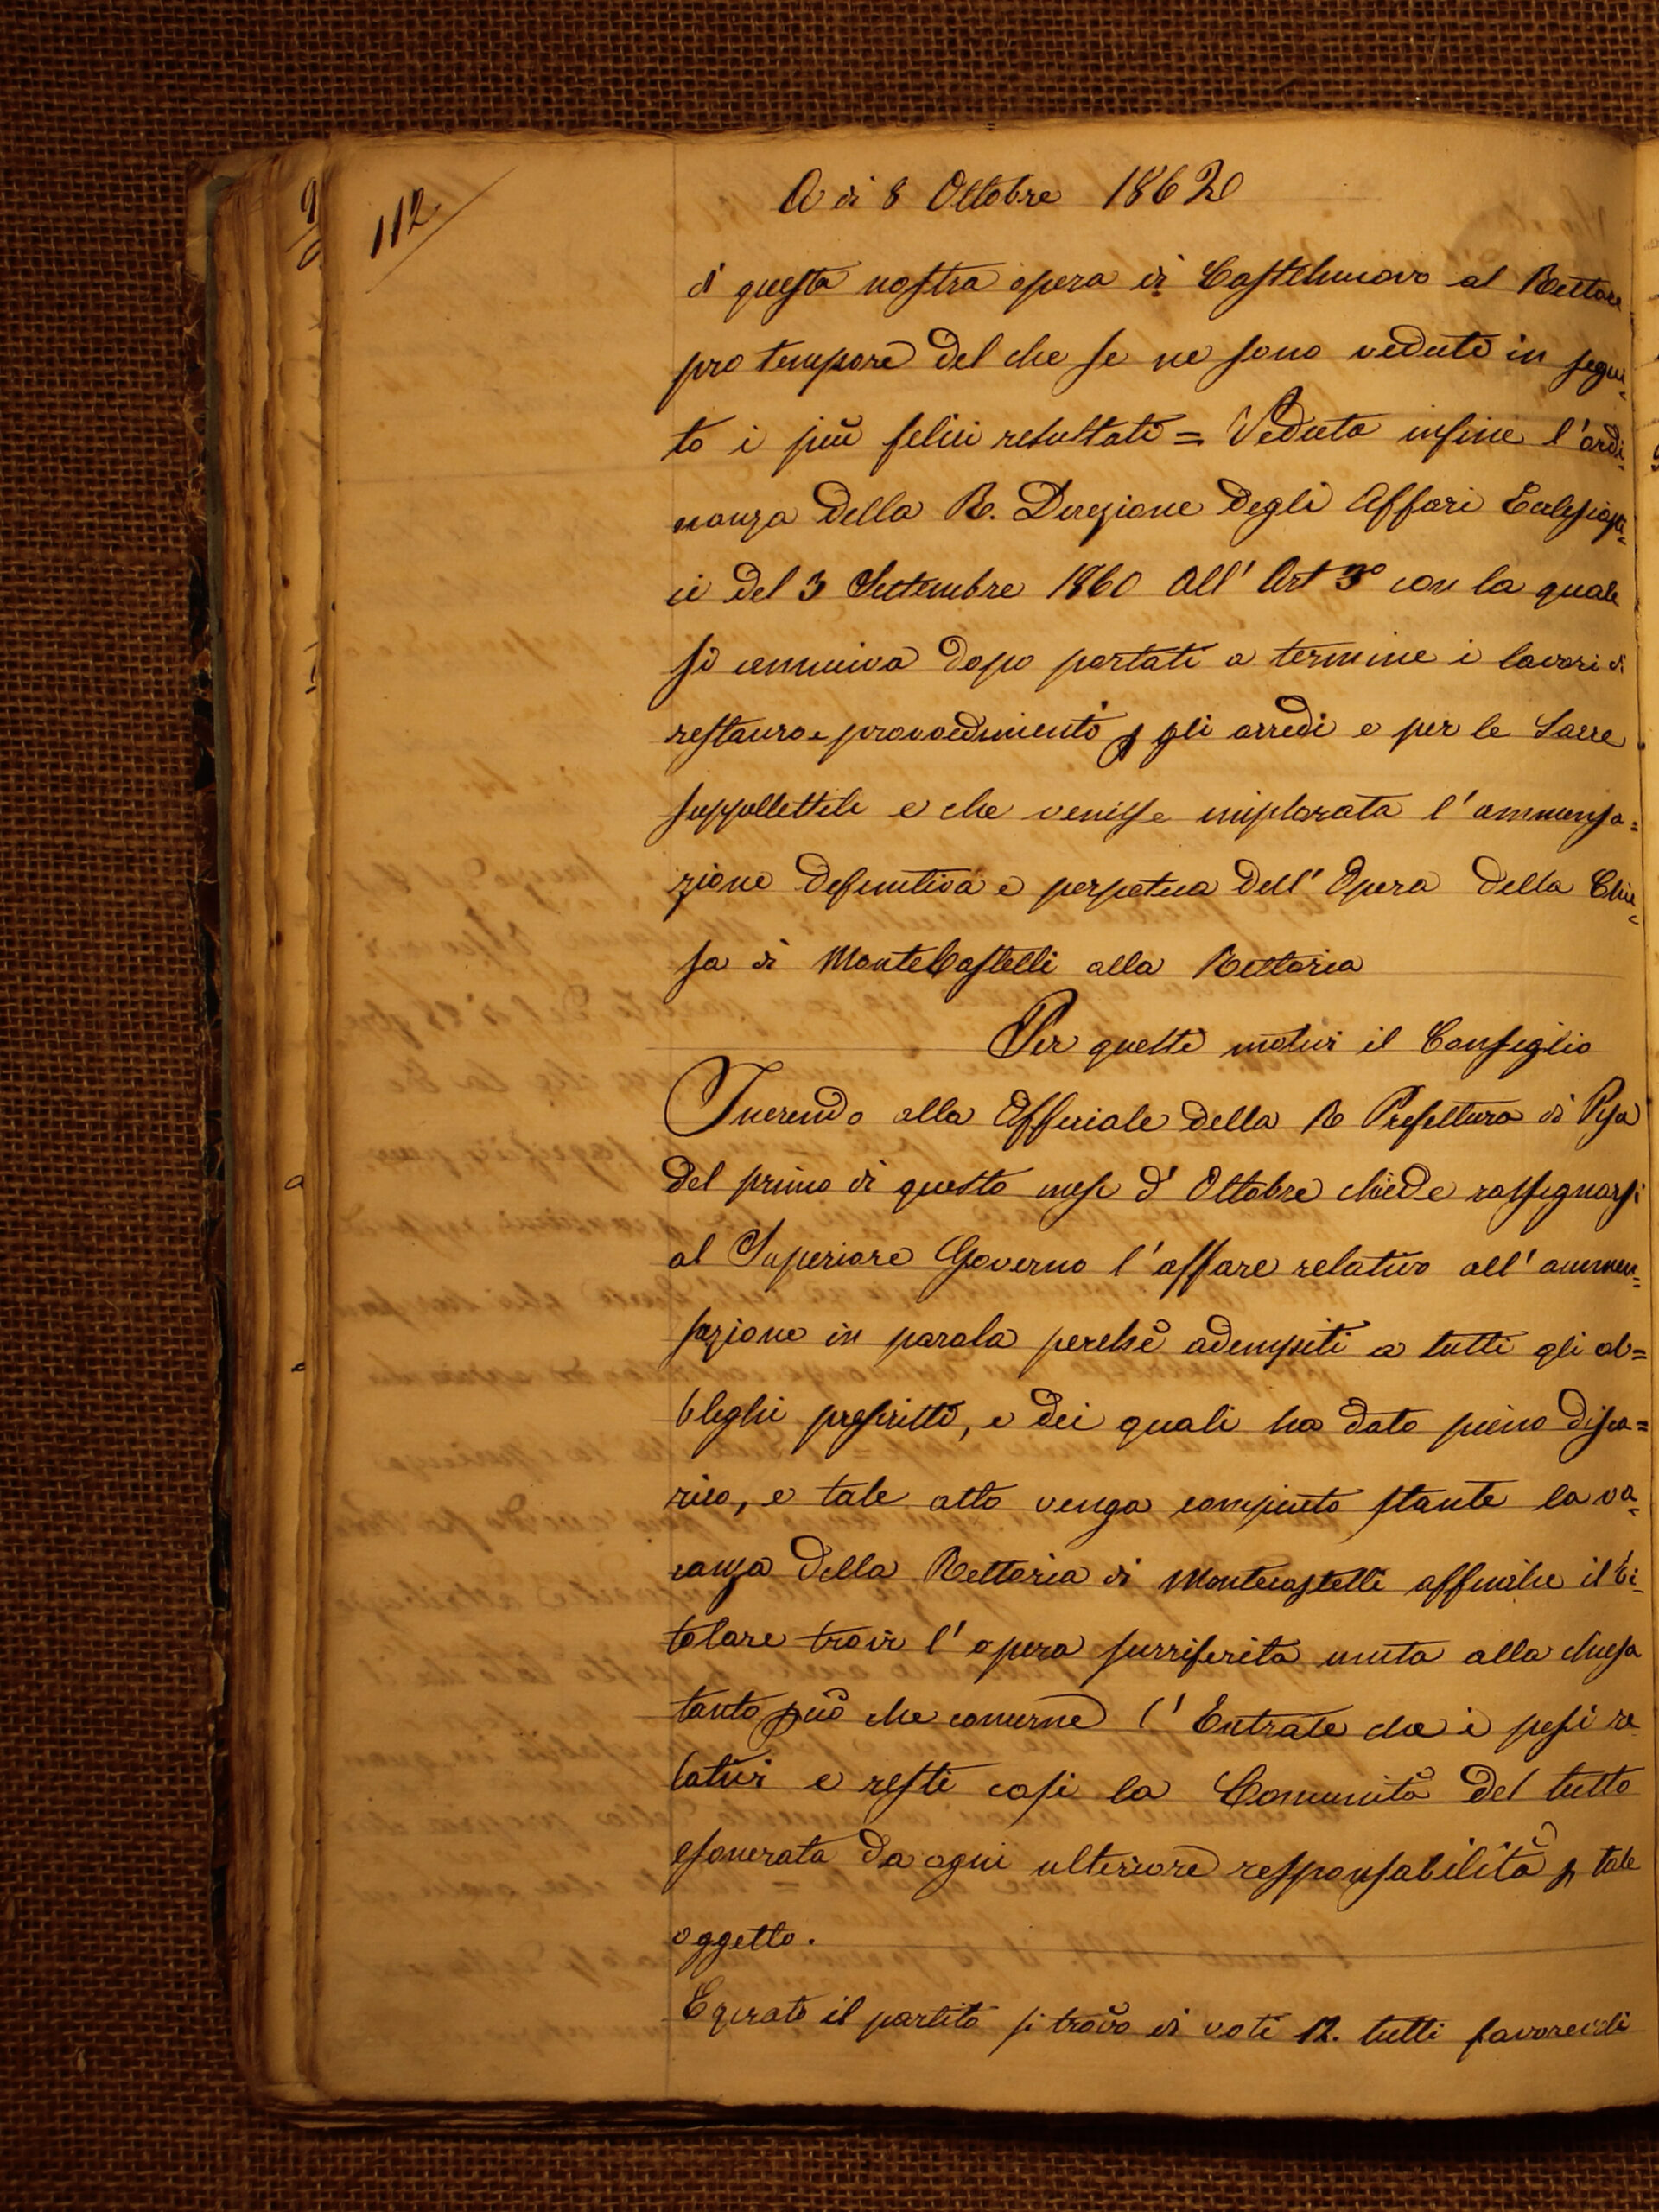 112
A di 8 Ottobre 1862
di questa nostra opera di Castelnuovo al Rettore
pro tempore del che se ne sono veduti in segui-
to i più felici resultati = Veduta infine l'ordi-
nanza della R. Direzione degli Affari Eclesiasti-
ci del 3 Settembre 1860 All' Art 3º con la quale
si annuiva dopo portati a termine i lavori di
restauro e provvedimenti p gli arredi e per le Sacre
suppellettili e che venisse implorata l'ammensa=
zione definitiva e perpetua dell' Opera della Chie-
sa di MonteCastelli alla Rettoria
Per questi motivi il Consiglio
Inerendo alla Officiale della R Prefettura di Pisa
del primo di questo mese d' Ottobre chiede rassegnarsi
al Superiore Governo l'affare relativo all' ammen=
sazione in parola perchè adempiti a tutti gli ob=
blighi prescritti, e dei quali ha dato pieno disca=
rico, e tale atto venga compiuto stante la va-
canza della Rettoria di Montecastelli affinche il ti-
tolare trovi l'opera surriferita unita alla chiesa
tanto più che concerne l'Entrate che i pesi re
lativi e resti così la Comunità del tutto
esonerata da ogni ulteriore responsabilità p tale
oggetto.
E girato il partito si trovò di voti 12. tutti favorevoli